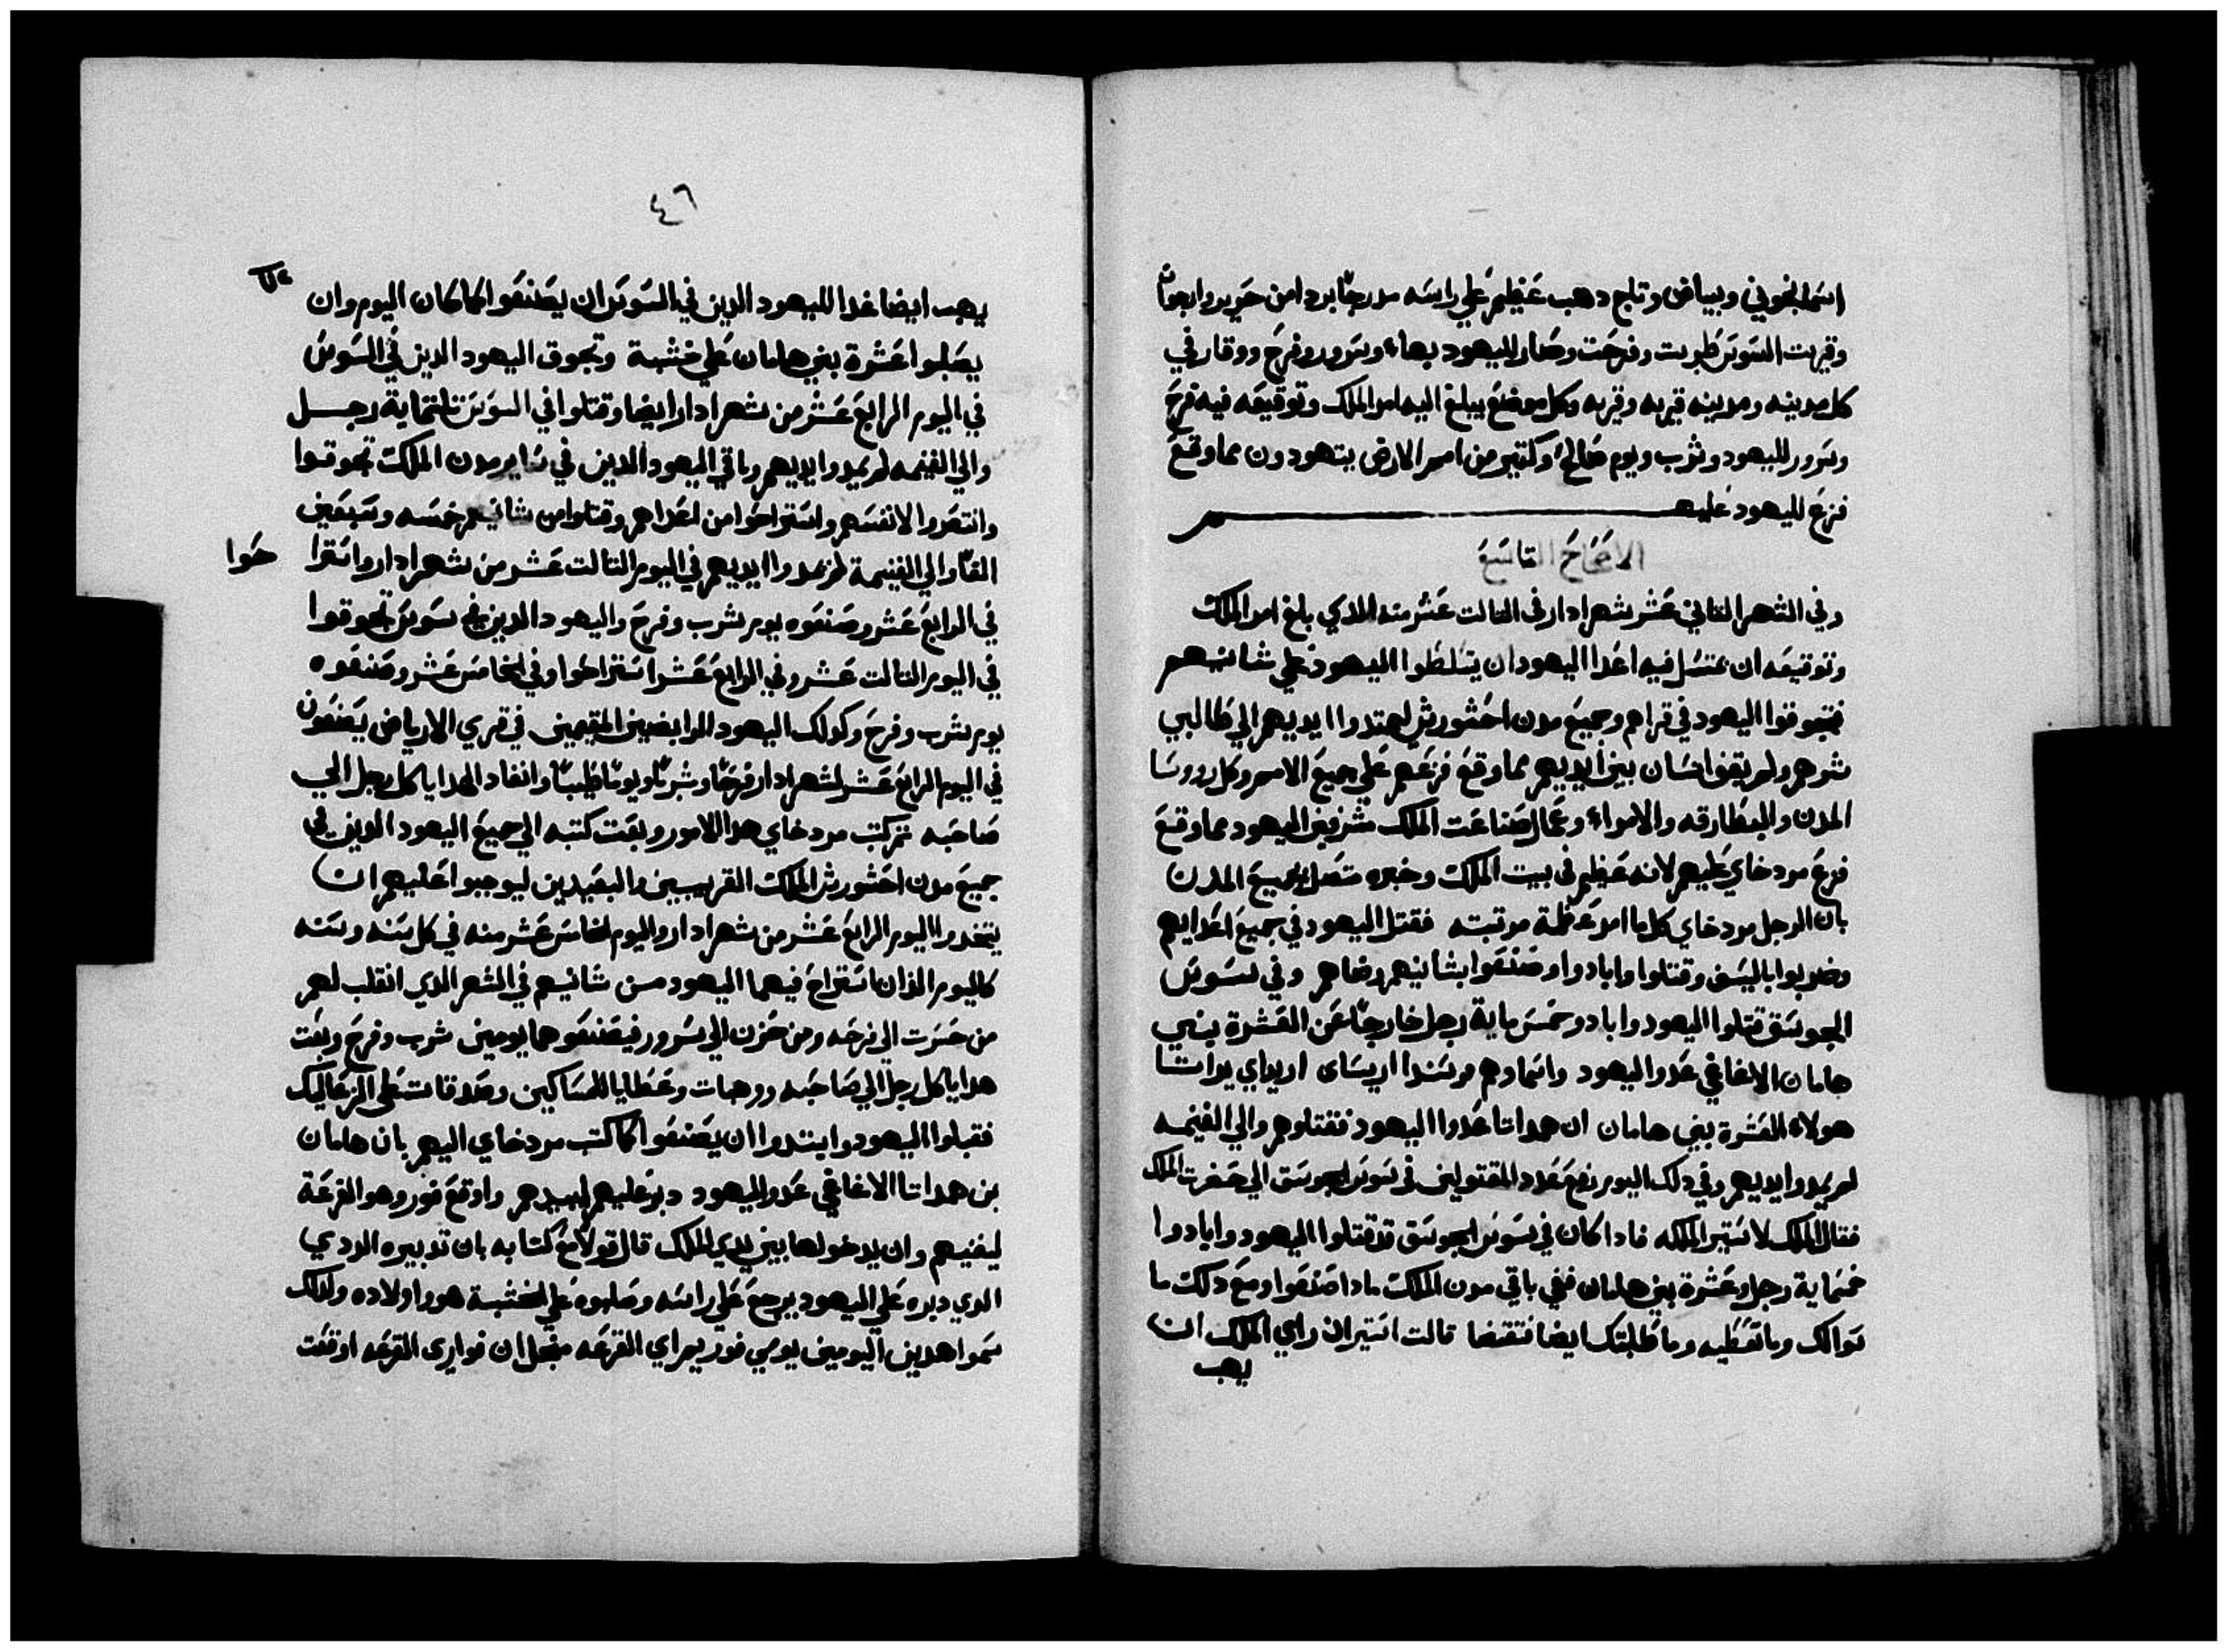 اسمانجوني وبياض وتاج دهب عظيم علي راسه مدرجا بردا من حرير وارجوان
وقريت السوس طربت وفرحت وصار لليهود بهاء وسرور وفرح ووقار في
كل مدينه ومدينه قريه وقريه وكل موضع يبلغ اليه امر الملك وتوقيعه فيه فرح
وسرور لليهود وشرب ويوم صالح وكتير من امم الارض يتهودون مما وقع
فزع لليهود عليهم
الاصحاح التاسع
وفي الشهر التاني عشر شهر ادار في التالت عشر منه الدي بلغ امر الملك
وتوقيعه ان يمتسل فيه اعدا اليهود ان يتسلطوا اليهود علي شانيهم
فتجوقوا اليهود في قراهم وجميع مدن احشورش ليمتدوا ايديهم الي طالبي
شرهم ولم يقف انسان بين ايديهم مما وقع فزعهم علي جميع الامم وكل رووسا
المدن والبطارقه والامراء وعمال صناعت الملك مشرفين اليهود مما وقع
فزع مردخاي عليهم لانه عظيم في بيت الملك وخبره متصل بجميع المدن
بان الرجل مردخاي كل ما امر عظمة مرتبته فقتل اليهود في جميع اعدايهم
وضربوا بالسيف وقتلوا وابادوا وصنعوا بشانيهم رضاهم وفي سوس
الجوسق قتلوا اليهود وابادو خمس ماية رجل خارجا عن العشرة بني
هامان الاغاغي عدو اليهود واسماوهم مرسندا اريساى اريداي يداتتا
هولاء العشرة بني هامان ابن همداتا عدوا اليهود فقتلوهم والي الغنيمه
لم يمدوا ايديهم وفي دلك اليوم رفع عدد المقتولين في سوس الجوسق الي حضرت الملك
فقال الملك لاستير الملكه فادا كان في سوس الجوسق قد قتلوا اليهود وابادوا
خمسماية رجل وعشرة بني هامان ففي باقي مدن الملك مادا صنعوا ومع دلك ما
سوالك وما تعطيه وما طلبتك ايضا فتقضا قالت استير ان راي الملك ان
يهب
٤٦
يهب ايضا غدا لليهود الدين في السوس ان يصنعوا كما كان اليوم وان
يصلبوا عشرة بني هامان علي خشبة وتجوق اليهود الدين في السوس
في اليوم الرابع عشر من شهر ادار ايضا وقتلوا في السوس تلتماية رجل
والي الغنيمه لم يمدوا ايديهم وباقي اليهود الدين في ساير مدن الملك تجوقوا
وانتصروا لانفسهم واستراحوا من اعداهم وقتلوا من شانيهم خمسه وسبعين
الفا والي الغنيمة لم يمدوا ايديهم في اليوم التالت عشر من شهر ادار واسترا حوا
في الرابع عشر وصنعوه يوم شرب وفرح واليهود الدين في سوس تجوقوا
في اليوم التالت عشر وفي الرابع عشر استراحوا وفي الخامس عشر وصنعوه
يوم شرب وفرح وكدلك اليهود الرابضين المقيمين في قري الارباض يصنعون
في اليوم الرابع عشر لشهر ادار فرحا وشربا ويوما طيبا وانفاد الهدايا كل رجل الي
صاحبه تم كتب مردخاي هدا الامور وبعت كتبه الي جميع اليهود الدين في
جميع مدن احشورش الملك القريبين والبعيدين ليوجبوا عليهم ان
يتخدوا اليوم الرابع عشر من شهر ادار واليوم الخامس عشر منه في كل سنه وسنه
كاليوم الذان استراح فيهما اليهود من شانيهم في الشهر الدي انقلب لهم
من حسرت الي فرحه ومن حزن الي سرور فيصنعوهما يومين شرب وفرح وبعت
هدايا كل رجل الي صاحبه ووهبات وعطايا للمساكين وصدقات علي الزعاليك
فقبلوا اليهود وابتدوا ان يصنعوا كما كتب مردخاي اليهم بان هامان
بن همداتا الاغاغي عدو اليهود دبر عليهم ليبيدهم واوقع فور وهو القرعة
ليفنيهم وان بدخولها بين يدي الملك قال قولا مع كتابه بان تدبيره الردي
الدي دبره علي اليهود يرجع علي راسه وصلبوه علي الخشبة هو واولاده ولدلك
سموا هدين اليومين يومي فوريم اي القرعه مجل ان فواري القرعه اوقعت